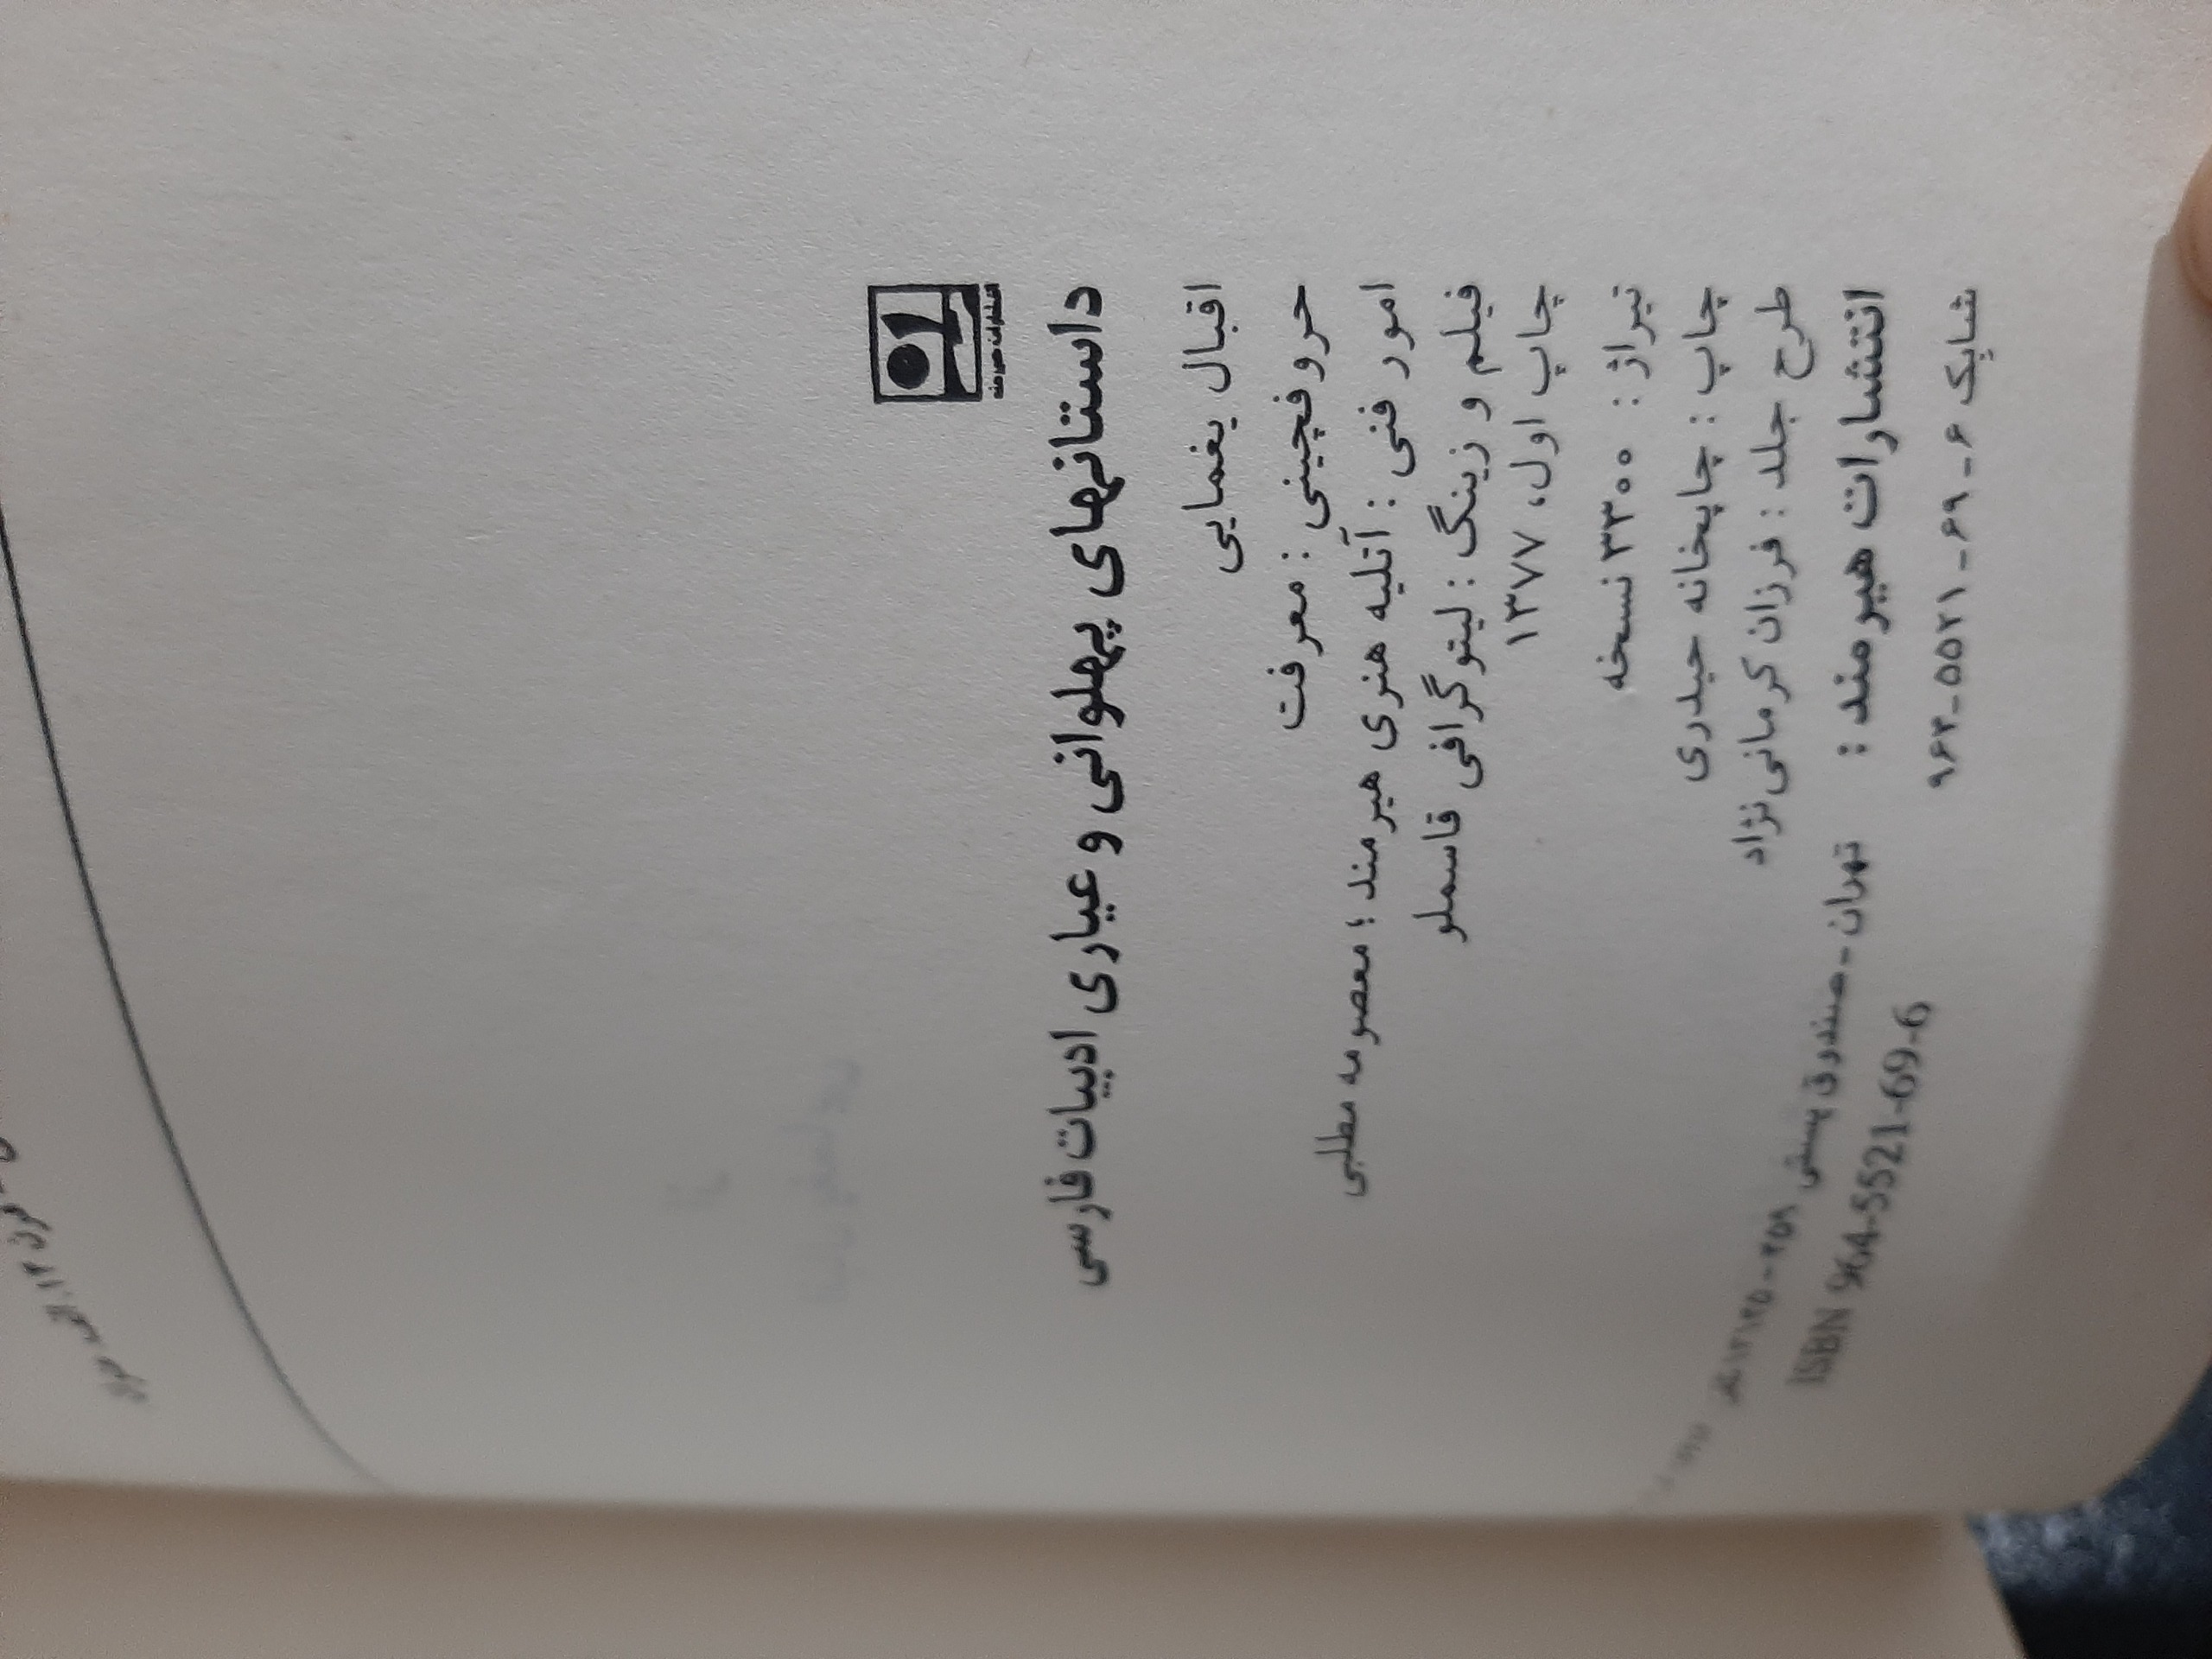 انتشارات هیرمند
داستانهای پهلوانی و عیاری ادبیات فارسی
اقبال یغمایی
حروفچینی : معرفت
امور فنی : آتلیه هنری هیرمند ؛ معصومه مطلبی
فیلم و زینگ : لیتوگرافی قاسملو
چاپ اول، ۱۳۷۷
تیراژ : ۳۳۰۰ نسخه
چاپ : چاپخانه حیدری
طرح جلد : فرزان کرمانی نژاد
انتشارات هیرمند : تهران - صندوق پستی ۴۵۹-۱۳۱۴۵
شابک ۶ - ۶۹ - ۵۵۲۱-۹۶۴ ISBN 964-5521-69-6